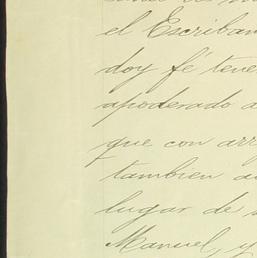 el Escriban
doy fé tene
apoderado a
que con arr
tambien au
lugar de
Manuel, y